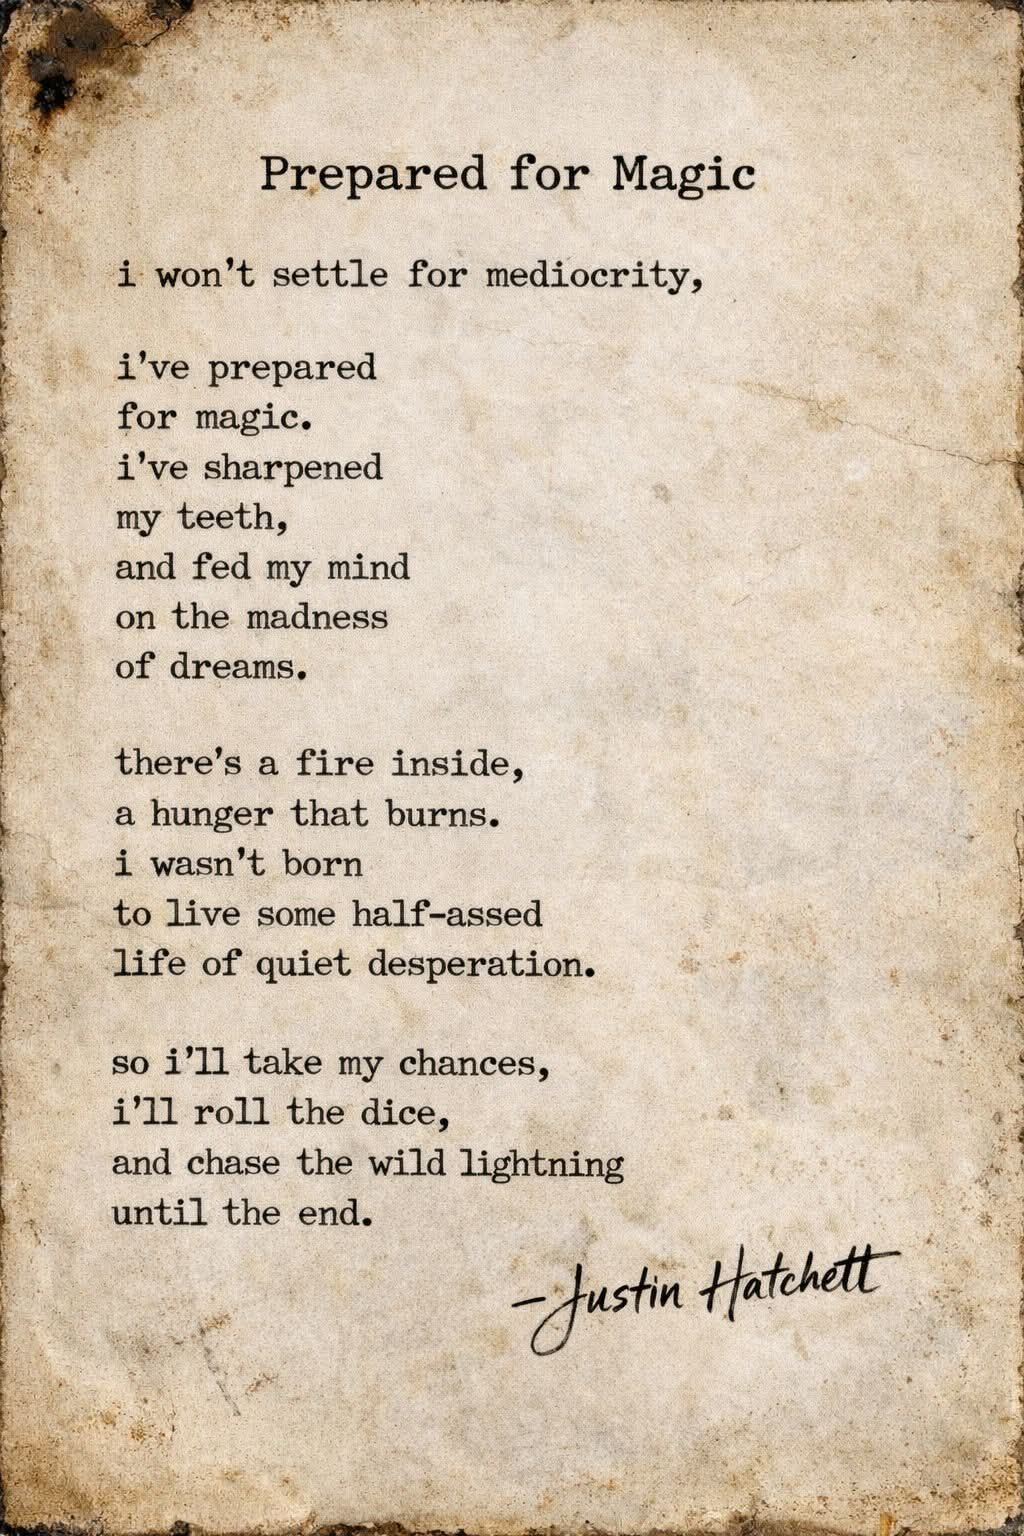 Prepared for Magic
i won't settle for mediocrity,
i've prepared
for magic.
i've sharpened
my teeth,
and fed my mind
on the madness
of dreams.
there's a fire inside,
a hunger that burns.
i wasn't born
to live some half-assed
life of quiet desperation.
so i'll take my chances,
i'll roll the dice,
and chase the wild lightning
until the end.
—Justin Hatchett